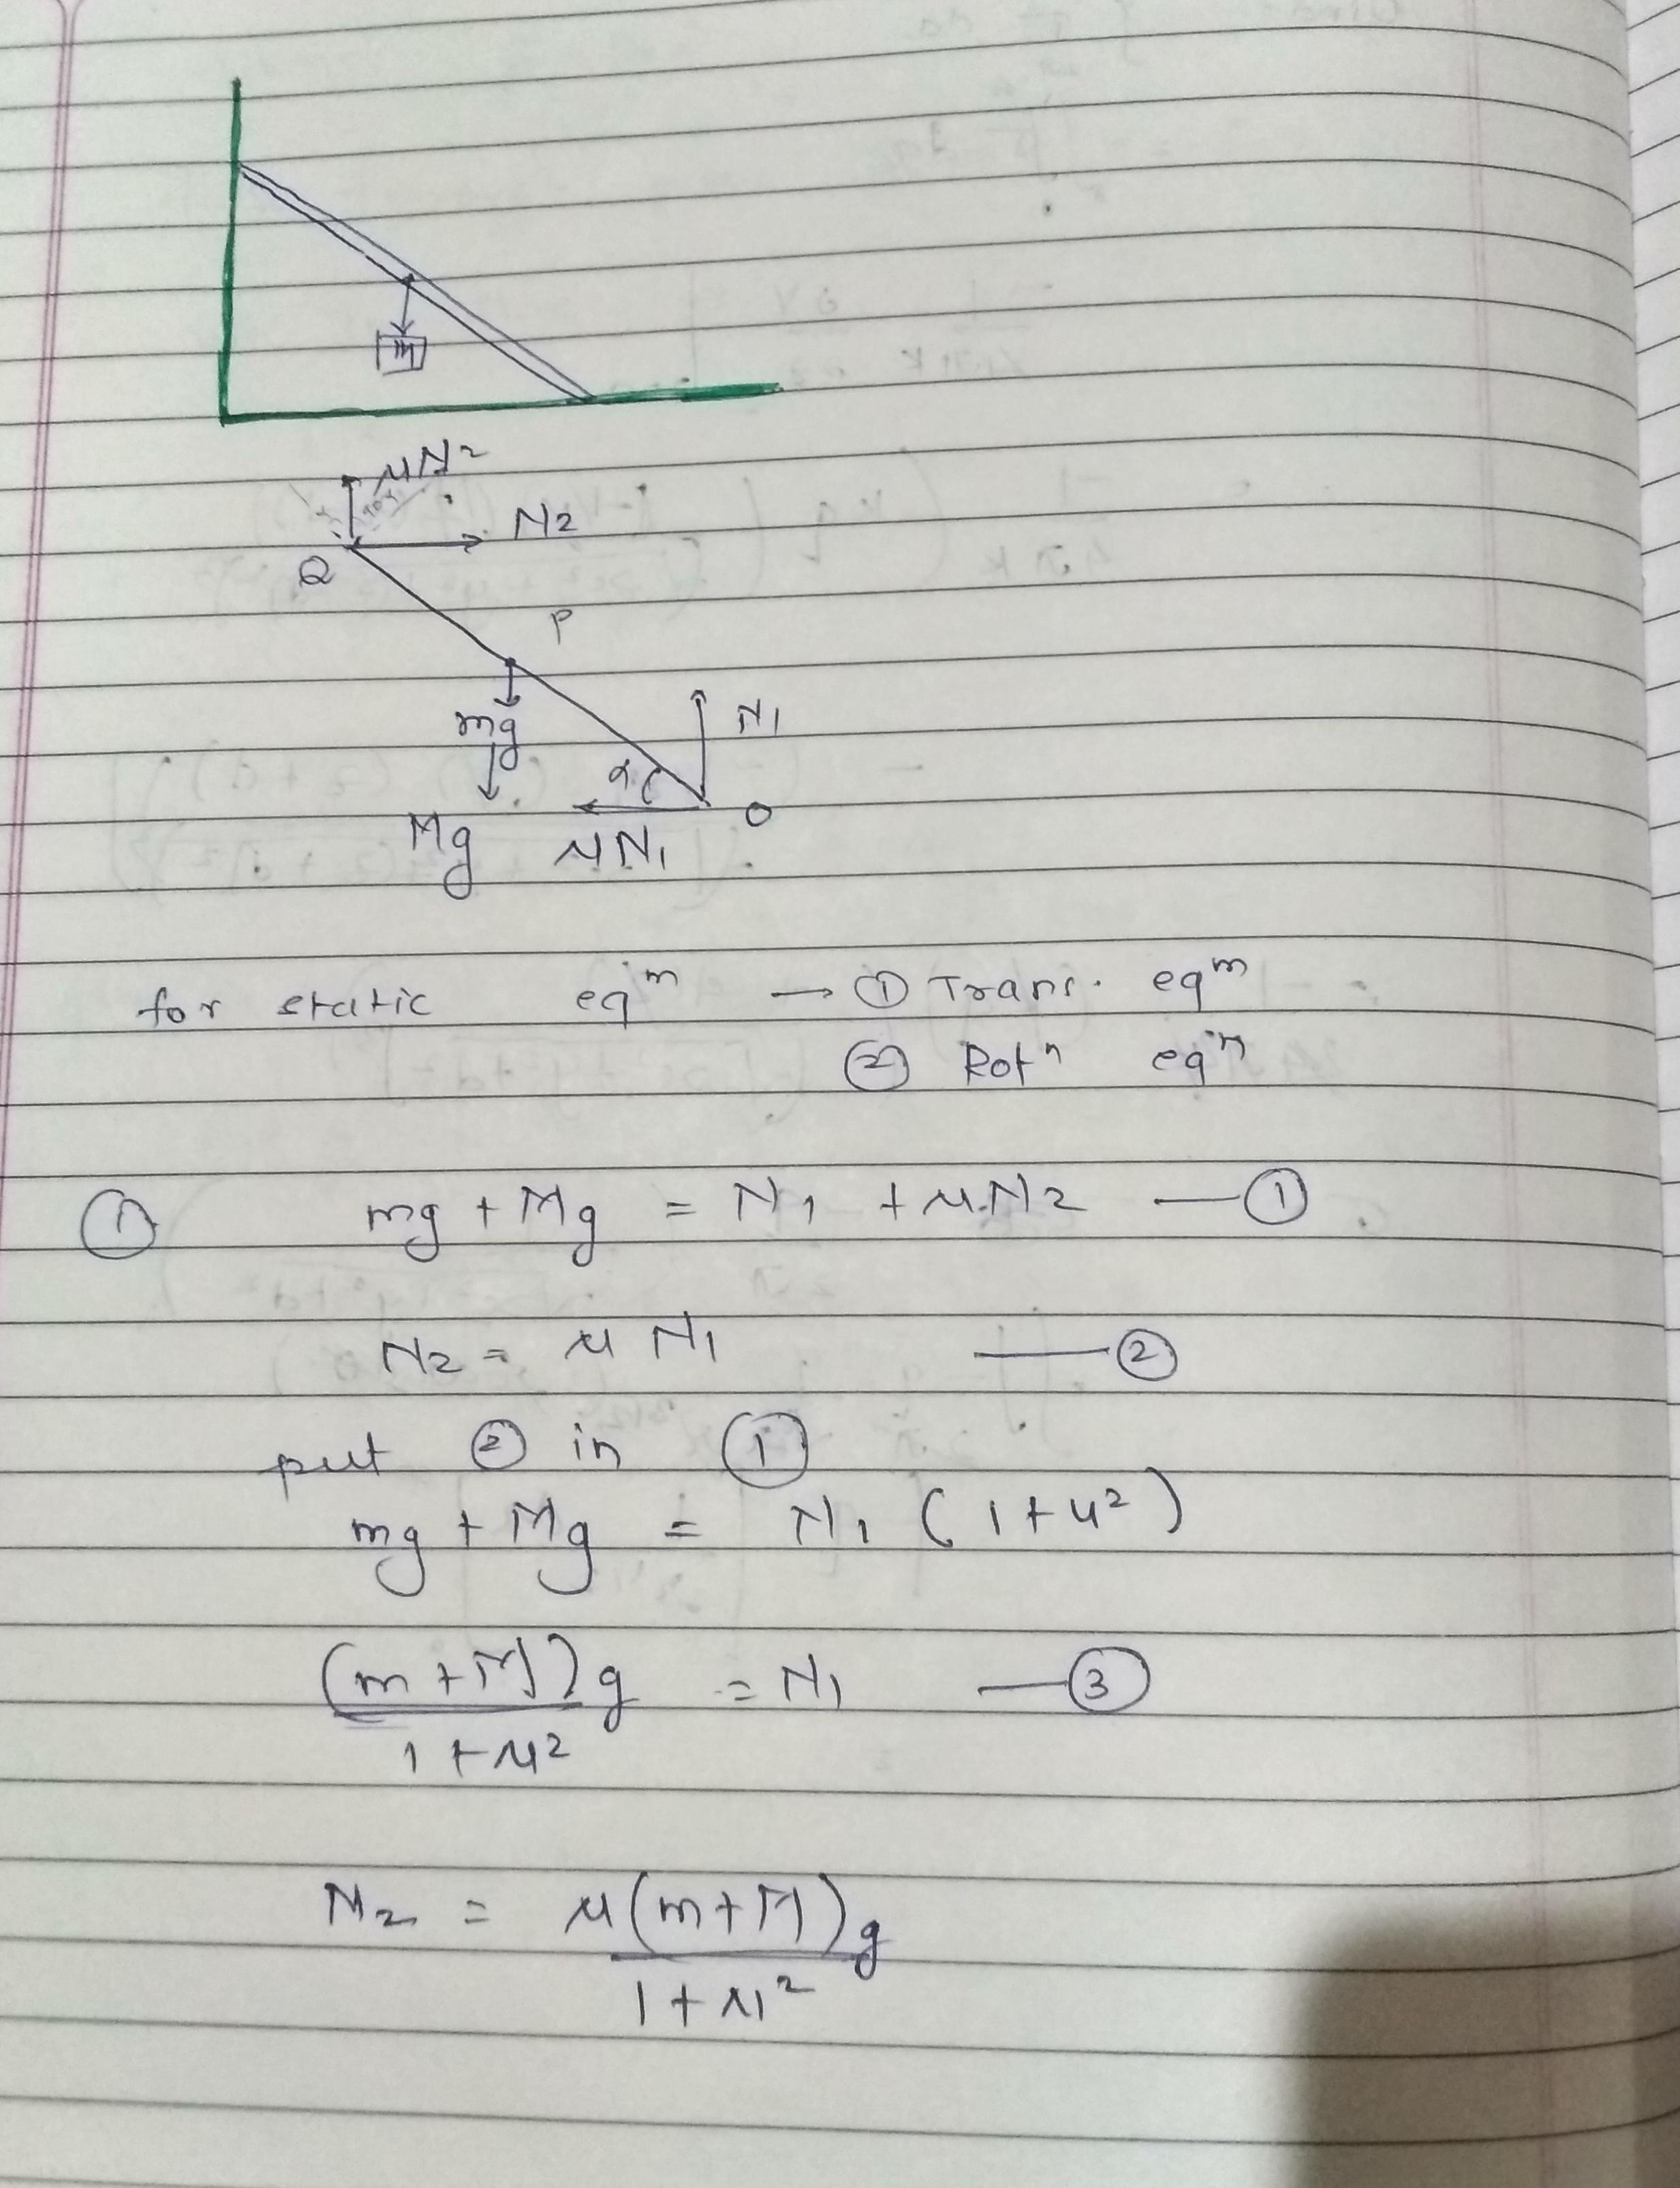 m
μN2
N2
Q
P
mg
N1
α
O
Mg
μN1
for static eqm → ① Trans. eqm
② Rotn eqn
① mg + Mg = N1 + μN2 — ①
N2 = μ N1 — ②
put ② in ①
mg + Mg = N1 (1+μ²)
(m+M)g = N1 — ③
1+μ²
N2 = μ(m+M)g
1+μ²